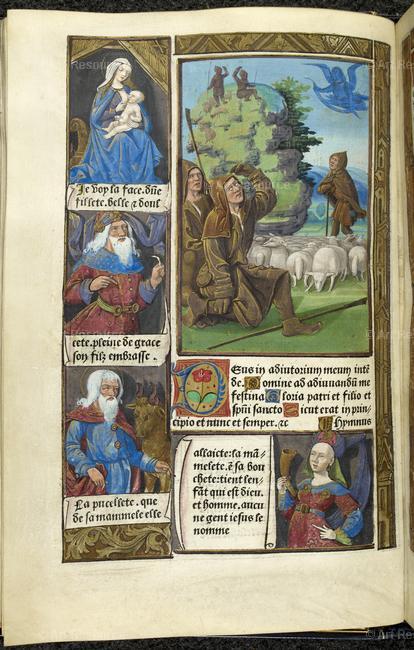 Je voy la face. dune
fillete. belle & douls
cete. pleine de grace
son filz embrasse.
La pucellete. que
de sa mammele elle
Deus in adiutorium meum inte
de. Domine ad adiuvandum me
festina Gloria patri et filio et
spiritui sancto Sicut erat in prin
cipio et nunc et semper. &c Hymnus
allaicte: la ma
melete. e sa bou
chete: tient len
fat qui est dieu.
et homme. aucu
ne gent iesus le
nomme
Art Resource
Art Resource